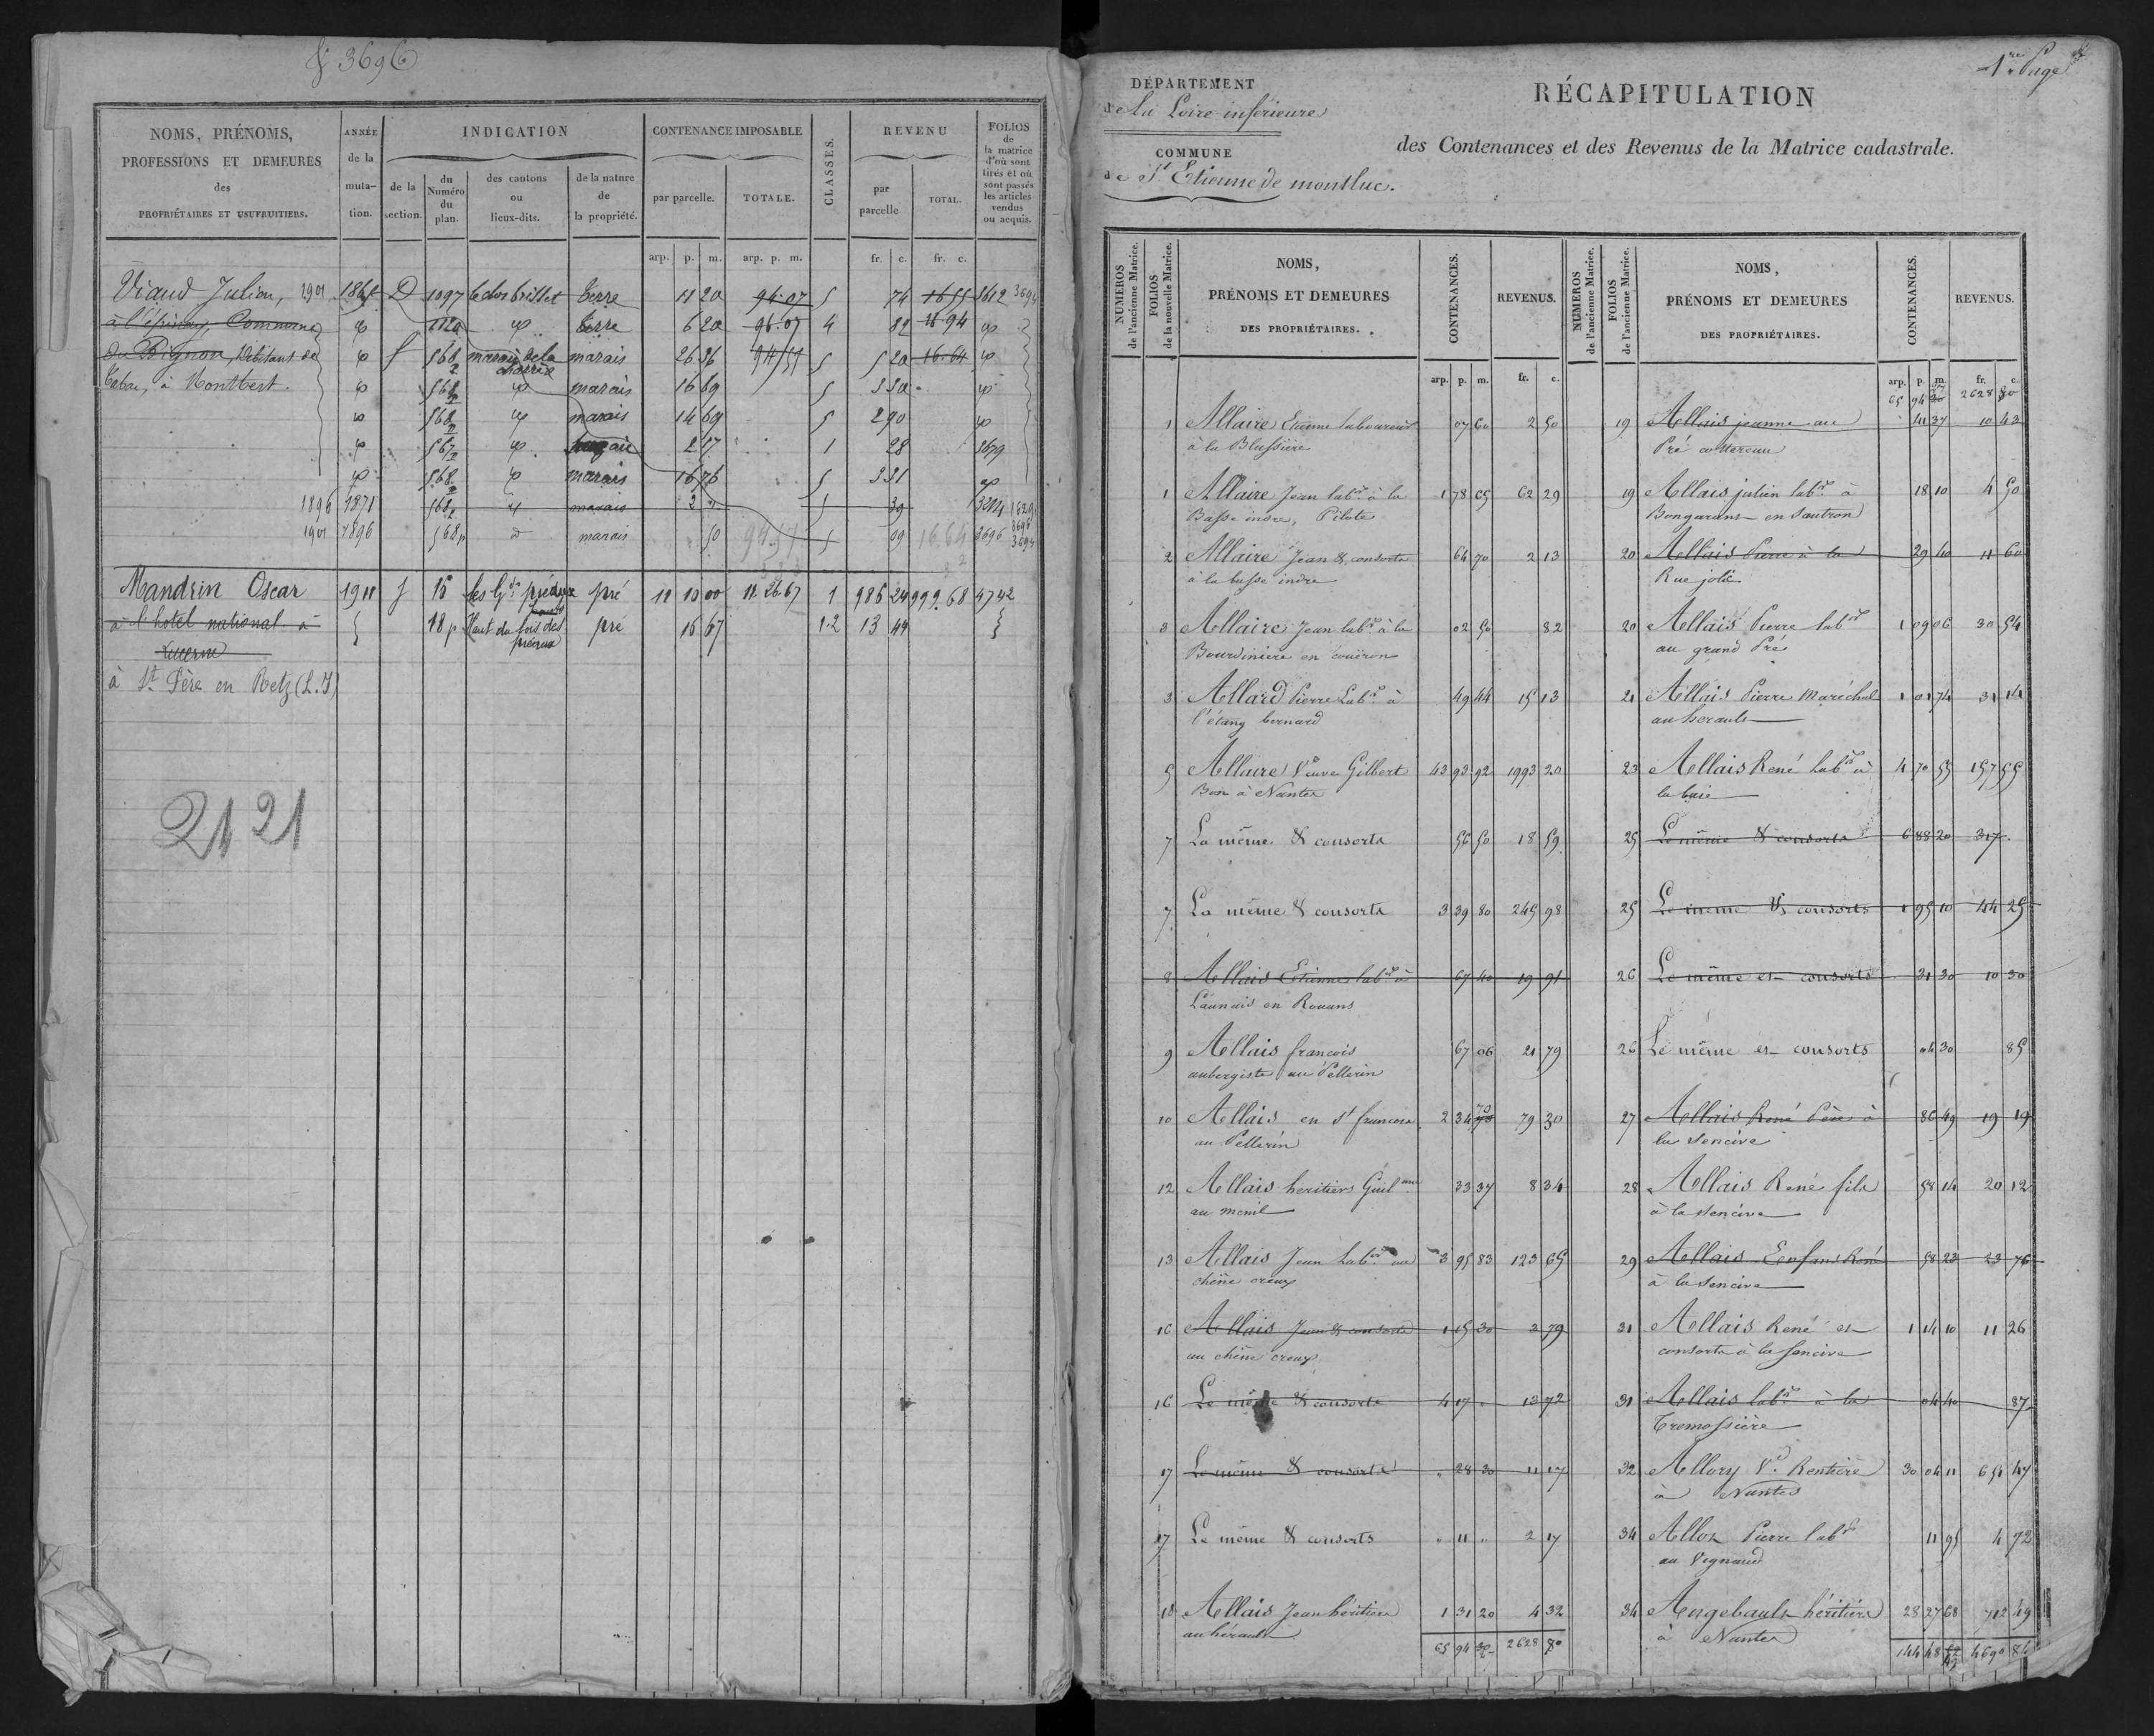 f. 3696
NOMS, PRÉNOMS, PROFESSIONS ET DEMEURES des PROPRIÉTAIRES ET USUFRUITIERS.
ANNÉE de la muta-tion.
INDICATION
de la section.
du Numéro du plan.
des cantons ou lieux-dits.
de la nature de la propriété.
CONTENANCE IMPOSABLE
par parcelle.
TOTALE.
CLASSES.
REVENU
par parcelle
TOTAL.
FOLIOS de la matrice d'où sont tirés et où sont passés les articles vendus ou acquis.
arp. p. m. arp. p. m. fr. c. fr. c.
Viaud Julien, 1901 1868 D 1097 le clos brillet terre 11 20 94.07 5 74 16 55 3612 3694
à l'épinay, Commune 1120 terre 6 20 96.07 4 82 16 94
du Bignon, Débitant de f 568 marais de la charrie marais 26 36 94 57 5 5 20 16.64
tabac, à Montbert. 568 marais 16 69 5 3 30
568 marais 14 69 5 2 90
567 2 17 1 28 3679
568 marais 16 76 5 3 31
1896 1871 568 marais 39
1901 1896 568 p marais 50 94.57 5 09 16.64 3696 3694
Mandrin Oscar 1911 J 15 les Gds préaux pré 11 10 00 11 26.67 1 986 24 999.68 4742
à l'hotel national à 18 p Haut du bois des préaux pré 16 67 1.2 13 44
Lucerne
à St Père en Retz (L.I)
2121
1re Page
DÉPARTEMENT
de la Loire inférieure
COMMUNE
de St Etienne de montluc.
RÉCAPITULATION
des Contenances et des Revenus de la Matrice cadastrale.
NUMEROS de l'ancienne Matrice.
FOLIOS de la nouvelle Matrice.
NOMS, PRÉNOMS ET DEMEURES DES PROPRIÉTAIRES.
CONTENANCES.
REVENUS.
arp. p. m. fr. c.
1 Allaire Etienne laboureur 07 60 2 50
à la Blussière
1 Allaire Jean labr à la 1 78 05 62 29
Basse indre, Pilote
2 Allaire Jean & consorts 64 70 2 13
à la basse indre
3 Allaire Jean labr à la 02 50 82
Bourdinière en couëron
3 Allard Pierre Labr à 49 44 15 13
l'étang bernard
5 Allaire Veuve Gilbert 43 93 92 1993 20
Bon à Nantes
7 La même & consorts 56 50 18 59
7 La même & consorts 3 39 80 245 98
8 Allais Etienne labr à 67 40 19 91
Launais en Rouans
9 Allais francois 67 06 21 79
aubergiste au Pellerin
10 Allais en St francois 2 34 70 79 30
au Pellerin
12 Allais heritiers Guilme 33 37 8 34
au menil
13 Allais Jean labr au 3 95 83 123 65
chêne creux
16 Allais Jean & consorts 1 15 30 3 79
au chêne creux
16 Le même & consorts 4 17 " 13 72
17 Le même & consorts " 28 30 11 17
17 Le même & consorts " 11 " 2 17
18 Allais Jean héritiers 1 31 20 4 32
au hérault
65 94 2628 80
NUMEROS de l'ancienne Matrice.
FOLIOS de l'ancienne Matrice.
NOMS, PRÉNOMS ET DEMEURES DES PROPRIÉTAIRES.
CONTENANCES.
REVENUS.
arp. p. m. fr. c.
65 94 2628 80
19 Allais jeanne au 41 37 10 43
Pré cottereau
19 Allais julien labr à 18 10 4 50
Bongarant en Sautron
20 Allais Pierre à la 29 40 11 60
Rue jolie
20 Allais Pierre labr 1 09 06 30 54
au grand Pré
21 Allais Pierre Maréchal 1 01 74 31 14
au herault
23 Allais René labr à 4 70 55 157 55
la haie
25 Le même & consorts 6 88 20 317
25 Le même & consorts 1 95 10 44 25
26 Le même et consorts 31 30 10 30
26 Le même et consorts 04 30 85
27 Allais René Père à 86 49 19 19
la Sencive
28 Allais René fils 58 14 20 12
à la Sencive
29 Allais Enfans René 58 23 23 76
à la Sencive
31 Allais René et 1 14 10 11 26
consorts à la Sencive
31 Allais labr à la 04 40 87
Tremossière
32 Allory Ve Rentière 30 04 11 651 47
à Nantes
34 Allon Pierre labr 11 95 4 72
au Vignaud
34 Angebault héritiers 28 27 68 712 49
à Nantes
144 48 4690 84